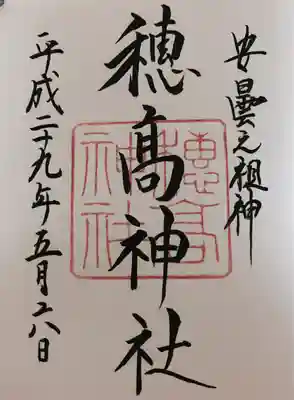 安曇元祖神
穂髙神社
穂高神社
平成二十九年五月二八日